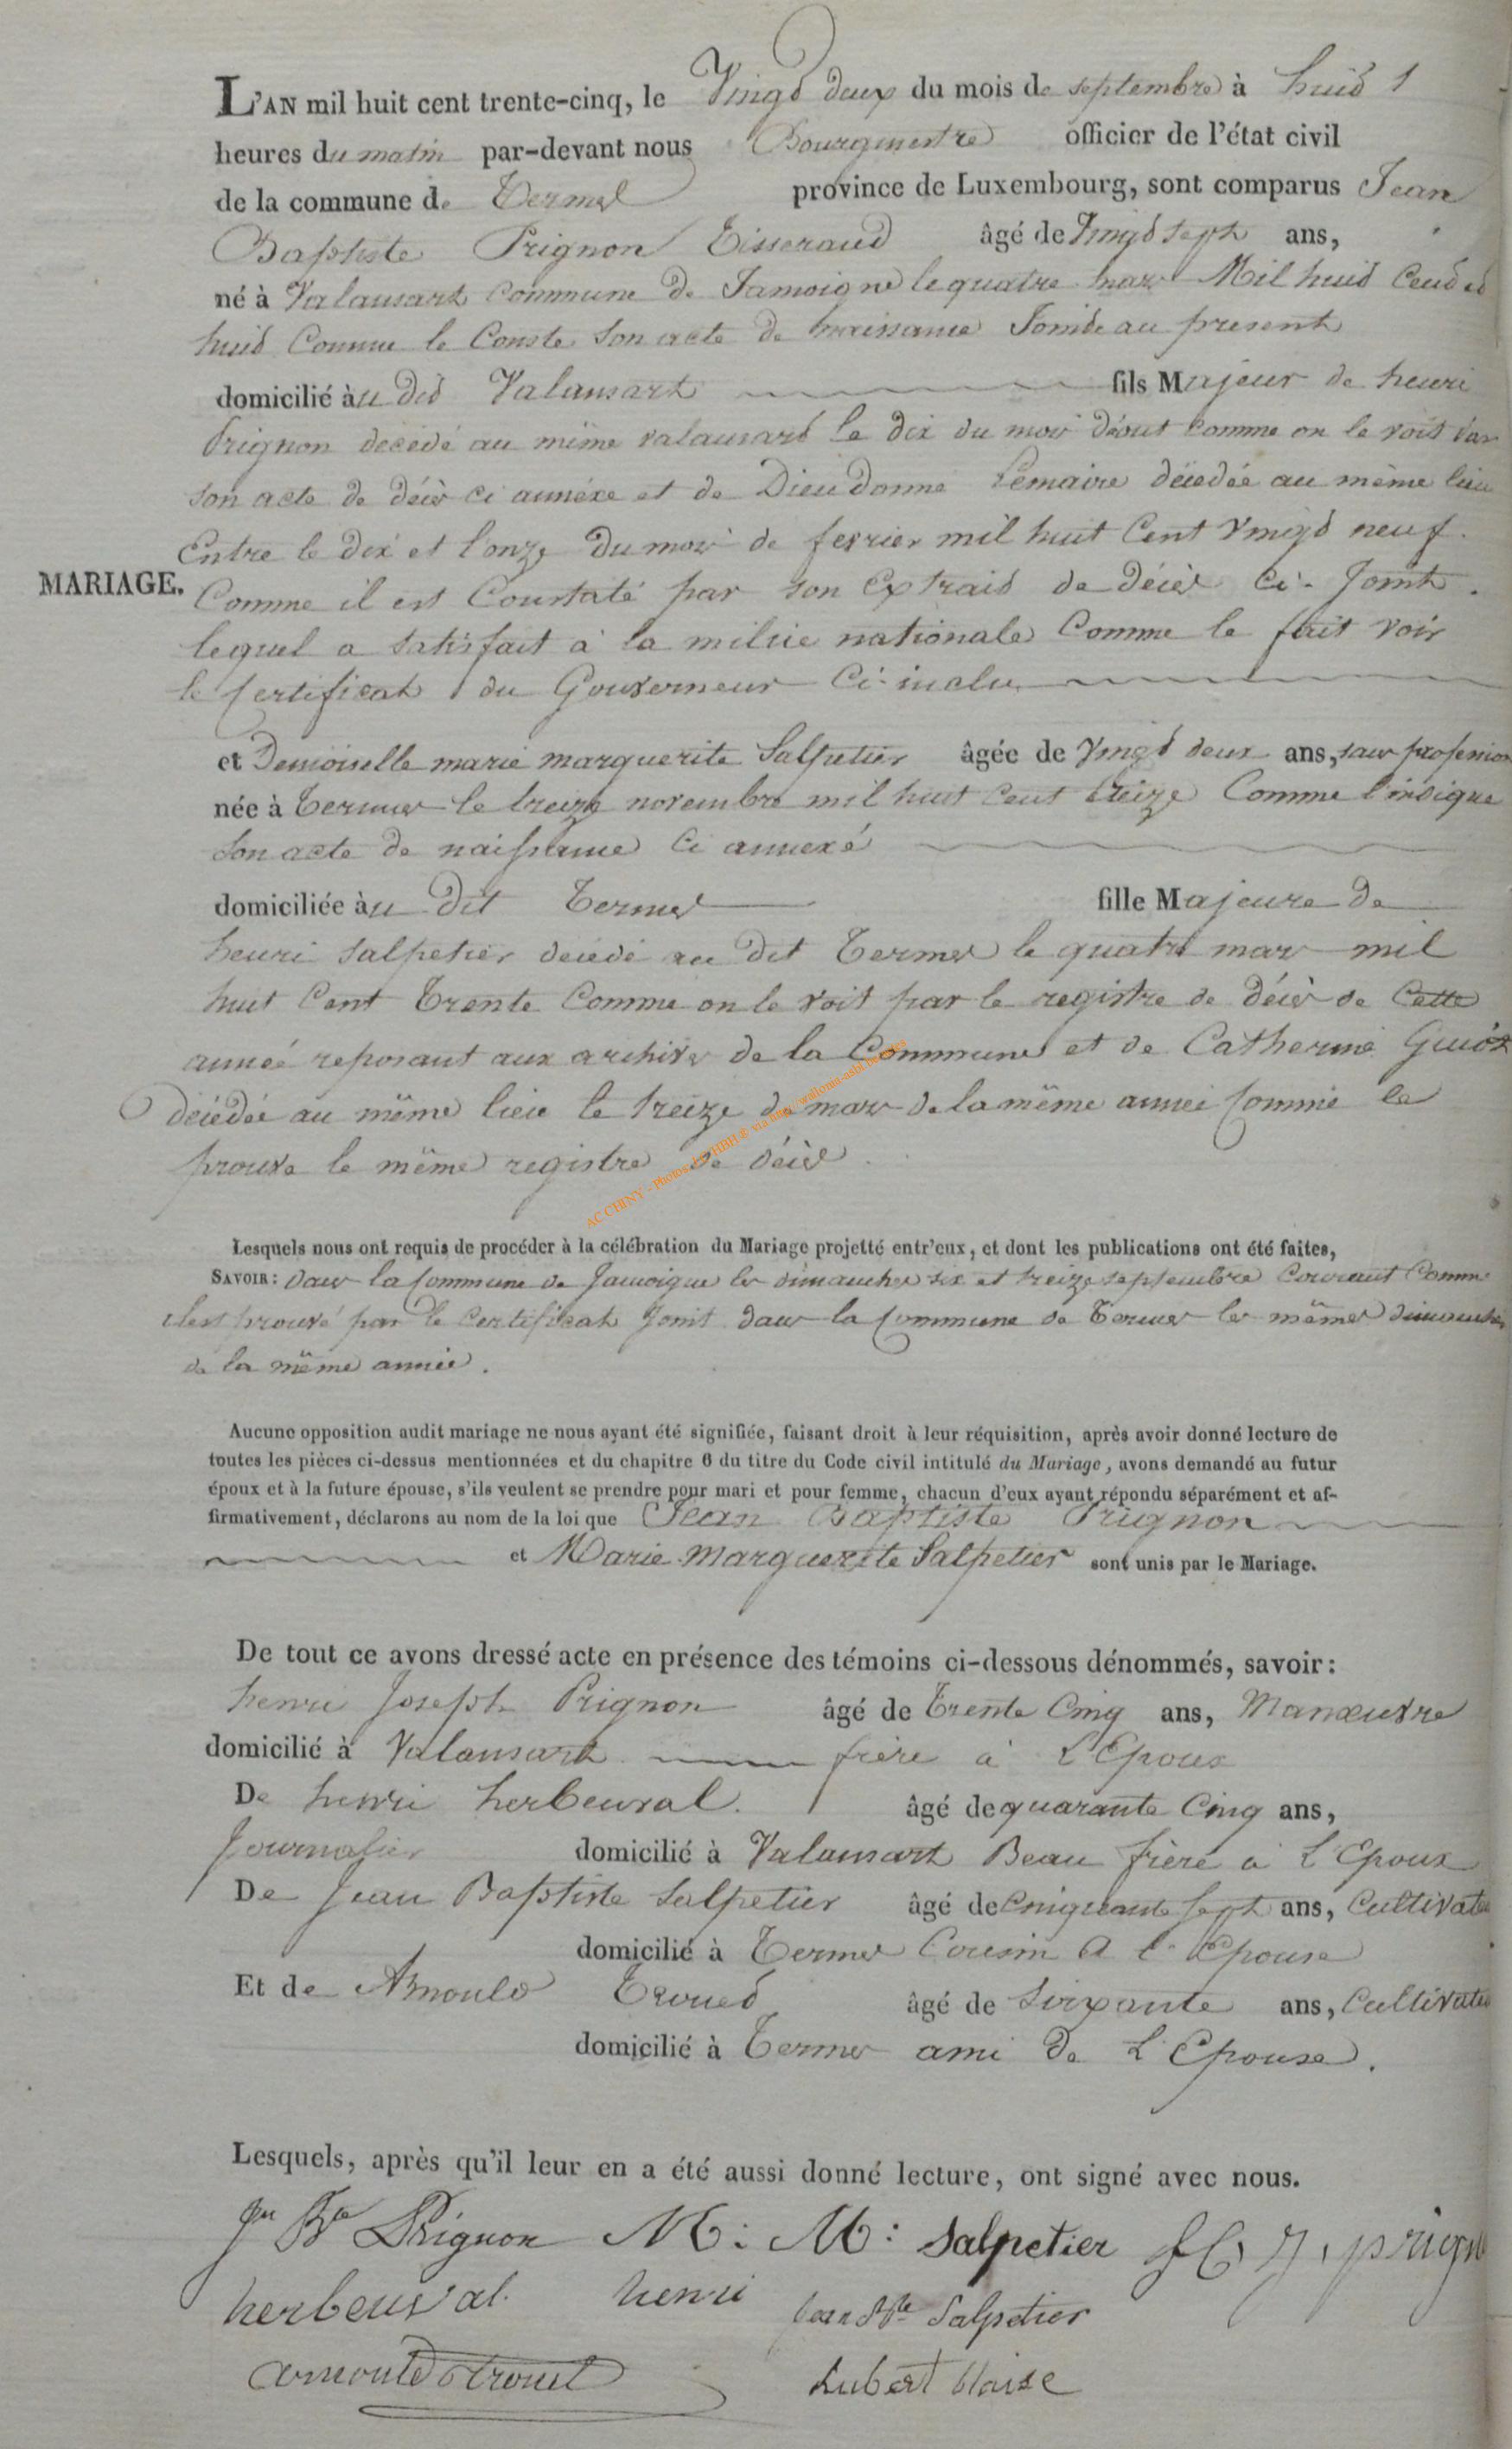 L'AN mil huit cent trente-cinq, le Vingd deux du mois de septembre à huid
heures du matin par-devant nous Bourgmestre officier de l'état civil
de la commune de Termes province de Luxembourg, sont comparus Jean
Baptiste Prignon Tisserand âgé de Vingd sept ans,
né à Valansart Commune de Jamoigne le quatre mars Mil huid Cend et
huid Comme le Conste Son acte de naissance Joint au present
domicilié au did Valansart fils Majeur de henri
Prignon décédé au même valansard le dix du moi d'aout comme on le voit par
son acte de décès ci annéxe et de Dieudonne Lemaire décédée au même lieu
Entre le dix et l'onze du moi de fevrier mil huit Cent vingd neuf.
MARIAGE. Comme il est Constaté par son Extraid de décès Ci-Joint.
lequel a satisfait à la milice nationale Comme le fait voir
le Certificat du Gouverneur Ci-inclu
et Demoiselle marie marguerite Salpetier âgée de Vingd deux ans, sans profession
née à Termes le treize novembre mil huit Cent treize Comme l'indique
Son acte de naissance Ci annexé
domiciliée au dit Termes fille Majeure de
henri Salpetier décédé au dit Termes le quatre mars mil
huit Cent Trente Comme on le voit par le registre de décès de Cette
année reposant aux archives de la Commune et de Catherine Guiot
décédée au même lieu le treize de mars de la même année Comme le
prouve le même registre de décès.
AC CHINY - Photos
Lesquels nous ont requis de procéder à la célébration du Mariage projetté entr'eux, et dont les publications ont été faites,
SAVOIR: dans la Commune de Jamoigne les dimanches six et treize septembre Courant Comme
il est prouvé par le Certificat Joint dans la Commune de Termes les mêmes dimanches
de la même année.
Aucune opposition audit mariage ne nous ayant été signifiée, faisant droit à leur réquisition, après avoir donné lecture de
toutes les pièces ci-dessus mentionnées et du chapitre 6 du titre du Code civil intitulé du Mariage, avons demandé au futur
époux et à la future épouse, s'ils veulent se prendre pour mari et pour femme, chacun d'eux ayant répondu séparément et af-
firmativement, déclarons au nom de la loi que Jean Baptiste Prignon
et Marie Marguerite Salpetier sont unis par le Mariage.
De tout ce avons dressé acte en présence des témoins ci-dessous dénommés, savoir:
henri Joseph Prignon âgé de Trente Cinq ans, Manœuvre
domicilié à Valansart frère à L'Epoux
De henri herbeuval. âgé de quarante Cinq ans,
Journalier domicilié à Valansart Beau frère à L'Epoux
De Jean Baptiste Salpetier âgé de Cinquante sept ans, Cultivateu
domicilié à Termes Cousin a l'Epouse
Et de Arnould Troued âgé de Soixante ans, Cultivateu
domicilié à Termes ami de L'Epouse.
Lesquels, après qu'il leur en a été aussi donné lecture, ont signé avec nous.
Jn Bte Prignon M: M: Salpetier h, J, prign
herbeuval. henri Jean Bte Salpetier
arnould trouet hubert blaise